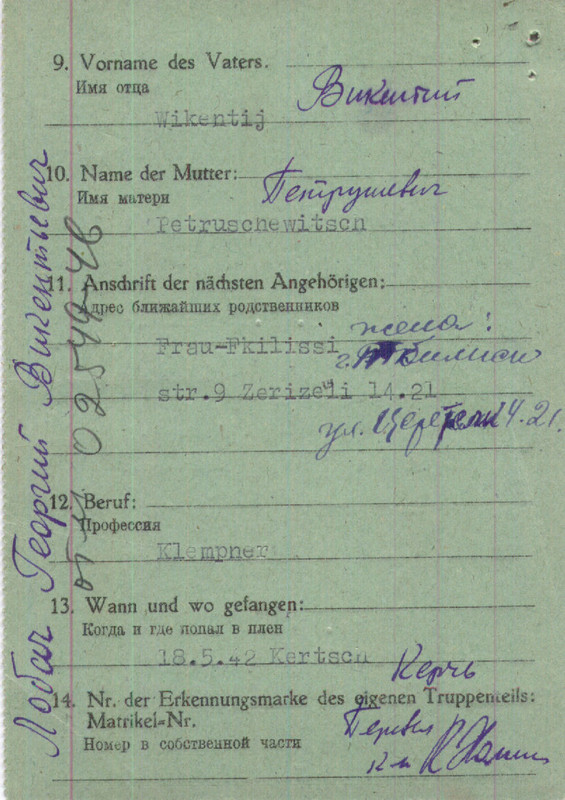 9. Vorname des Vaters.
Имя отца
Викентий
Wikentij
10. Name der Mutter:
Имя матери
Петрушевич
Petruschewitsch
11. Anschrift der nächsten Angehörigen:
Адрес ближайших родственников
жена:
Frau-Fkilissi
г. Тбилиси
str.9 Zerizeli 14.21
ул. Церетели 14.21.
12. Beruf:
Профессия
Klempner
13. Wann und wo gefangen:
Когда и где попал в плен
18.5.42 Kertsch
Керчь
14. Nr. der Erkennungsmarke des eigenen Truppenteils:
Matrikel=Nr.
Номер в собственной части
Перевел
Лобач Георгий Викентьевич